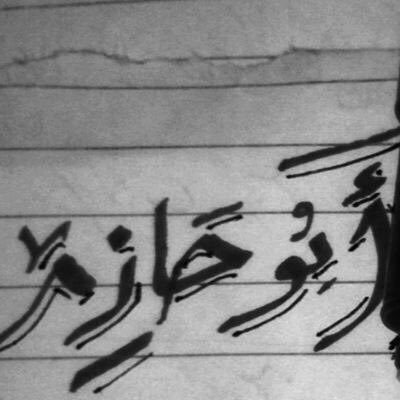 أَبُو حَازِمٍ